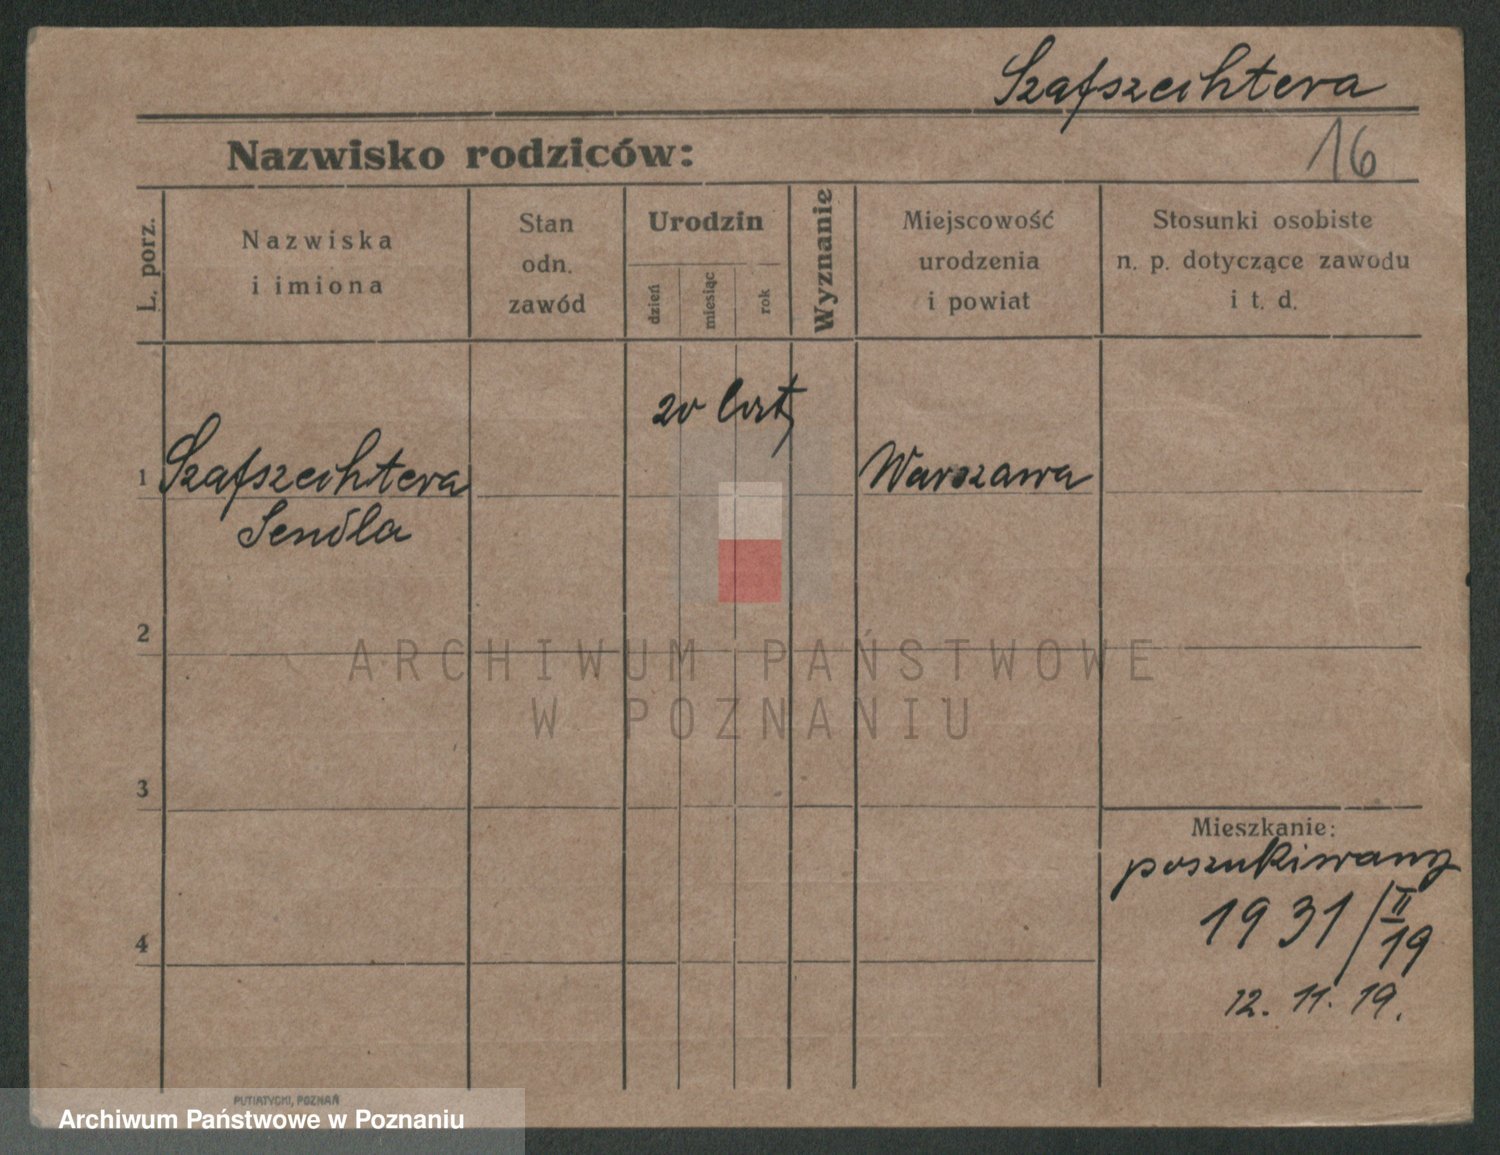 Szafszechtera
Nazwisko rodziców:
16
L. porz.
Nazwiska
i imiona
Stan
odn.
zawód
Urodzin
dzień
miesiąc
rok
Wyznanie
Miejscowość
urodzenia
i powiat
Stosunki osobiste
n. p. dotyczące zawodu
i t. d.
1
Szafszechtera
Sendla
20 lat
Warszawa
2
3
4
Mieszkanie:
poszukiwany
1931/II
19
12. 11. 19.
PUTIATYCKI, POZNAŃ
ARCHIWUM PAŃSTWOWE
W POZNANIU
Archiwum Państwowe w Poznaniu